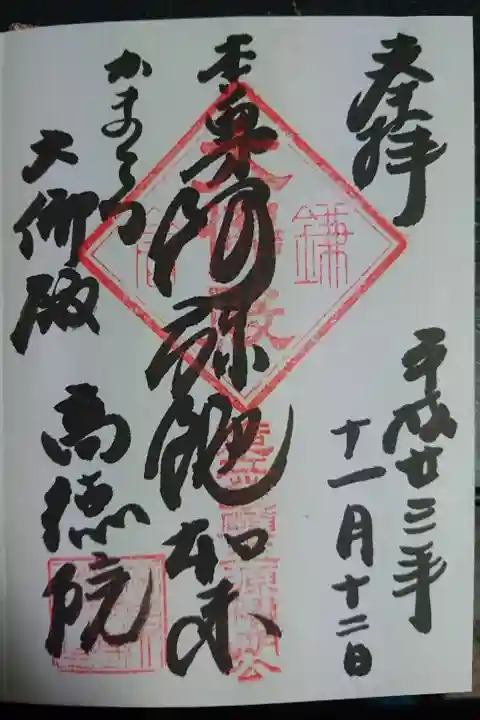 奉拝
平成廿三年
十一月十二日
本尊阿弥陀如来
鎌
倉
大佛殿
かまくら
大佛殿
高徳院